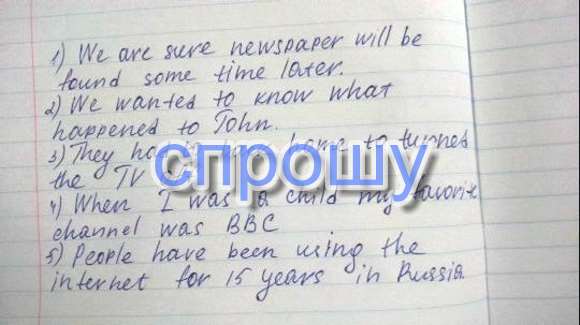 1) We are sure newspaper will be
found some time later.
2) We wanted to know what
happened to John.
3) They home to turned
the TV
4) When I was a child my favorite
channel was BBC
5) People have been using the
internet for 15 years in Russia.
спрошу